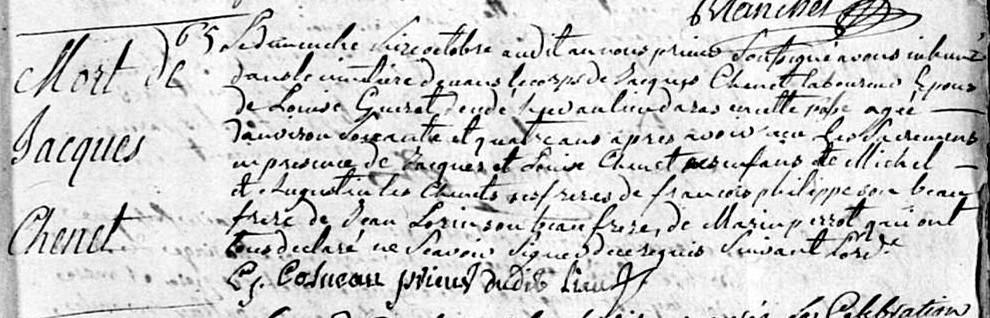 Blanchet
65
Mort de
Jacques
Chenet
Le Dimanche seize octobre audit an nous prieur soussigné avons inhumé
dans le cimetière le corps de Jacques Chenet laboureur Epoux
de Louise Guerot decedé en cette psse agé
d'environ soixante et quatre ans apres avoir reçu les Sacremens
en presence de Jacques et Louise Chenet ses enfans de Michel
et Augustin les Chenets ses freres de françois philippe son beau
frere de Jean son beau frere, de perrot qui ont
tous declaré ne Scavoir Signer de ce requis Suivant l'ord.ce
Cosneau prieur dudit lieu
Celebration